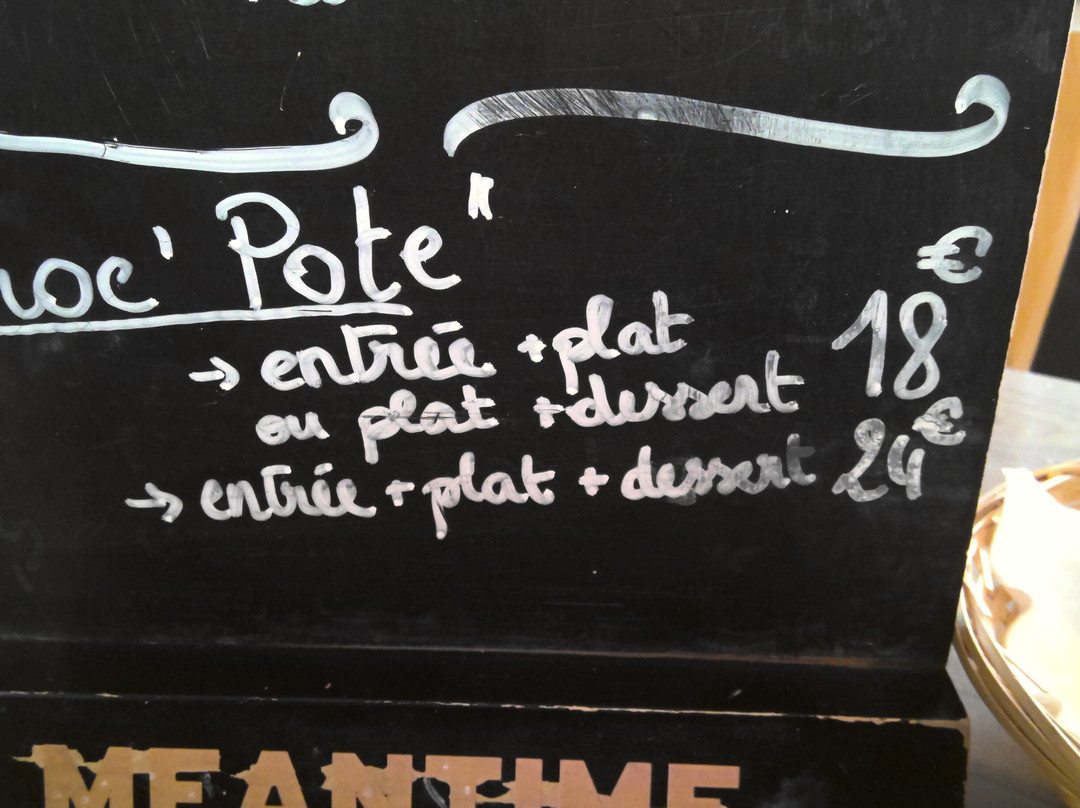 Pote"
→ entrée + plat 18€
ou plat + dessert
→ entrée + plat + dessert 24€
MEANTIME